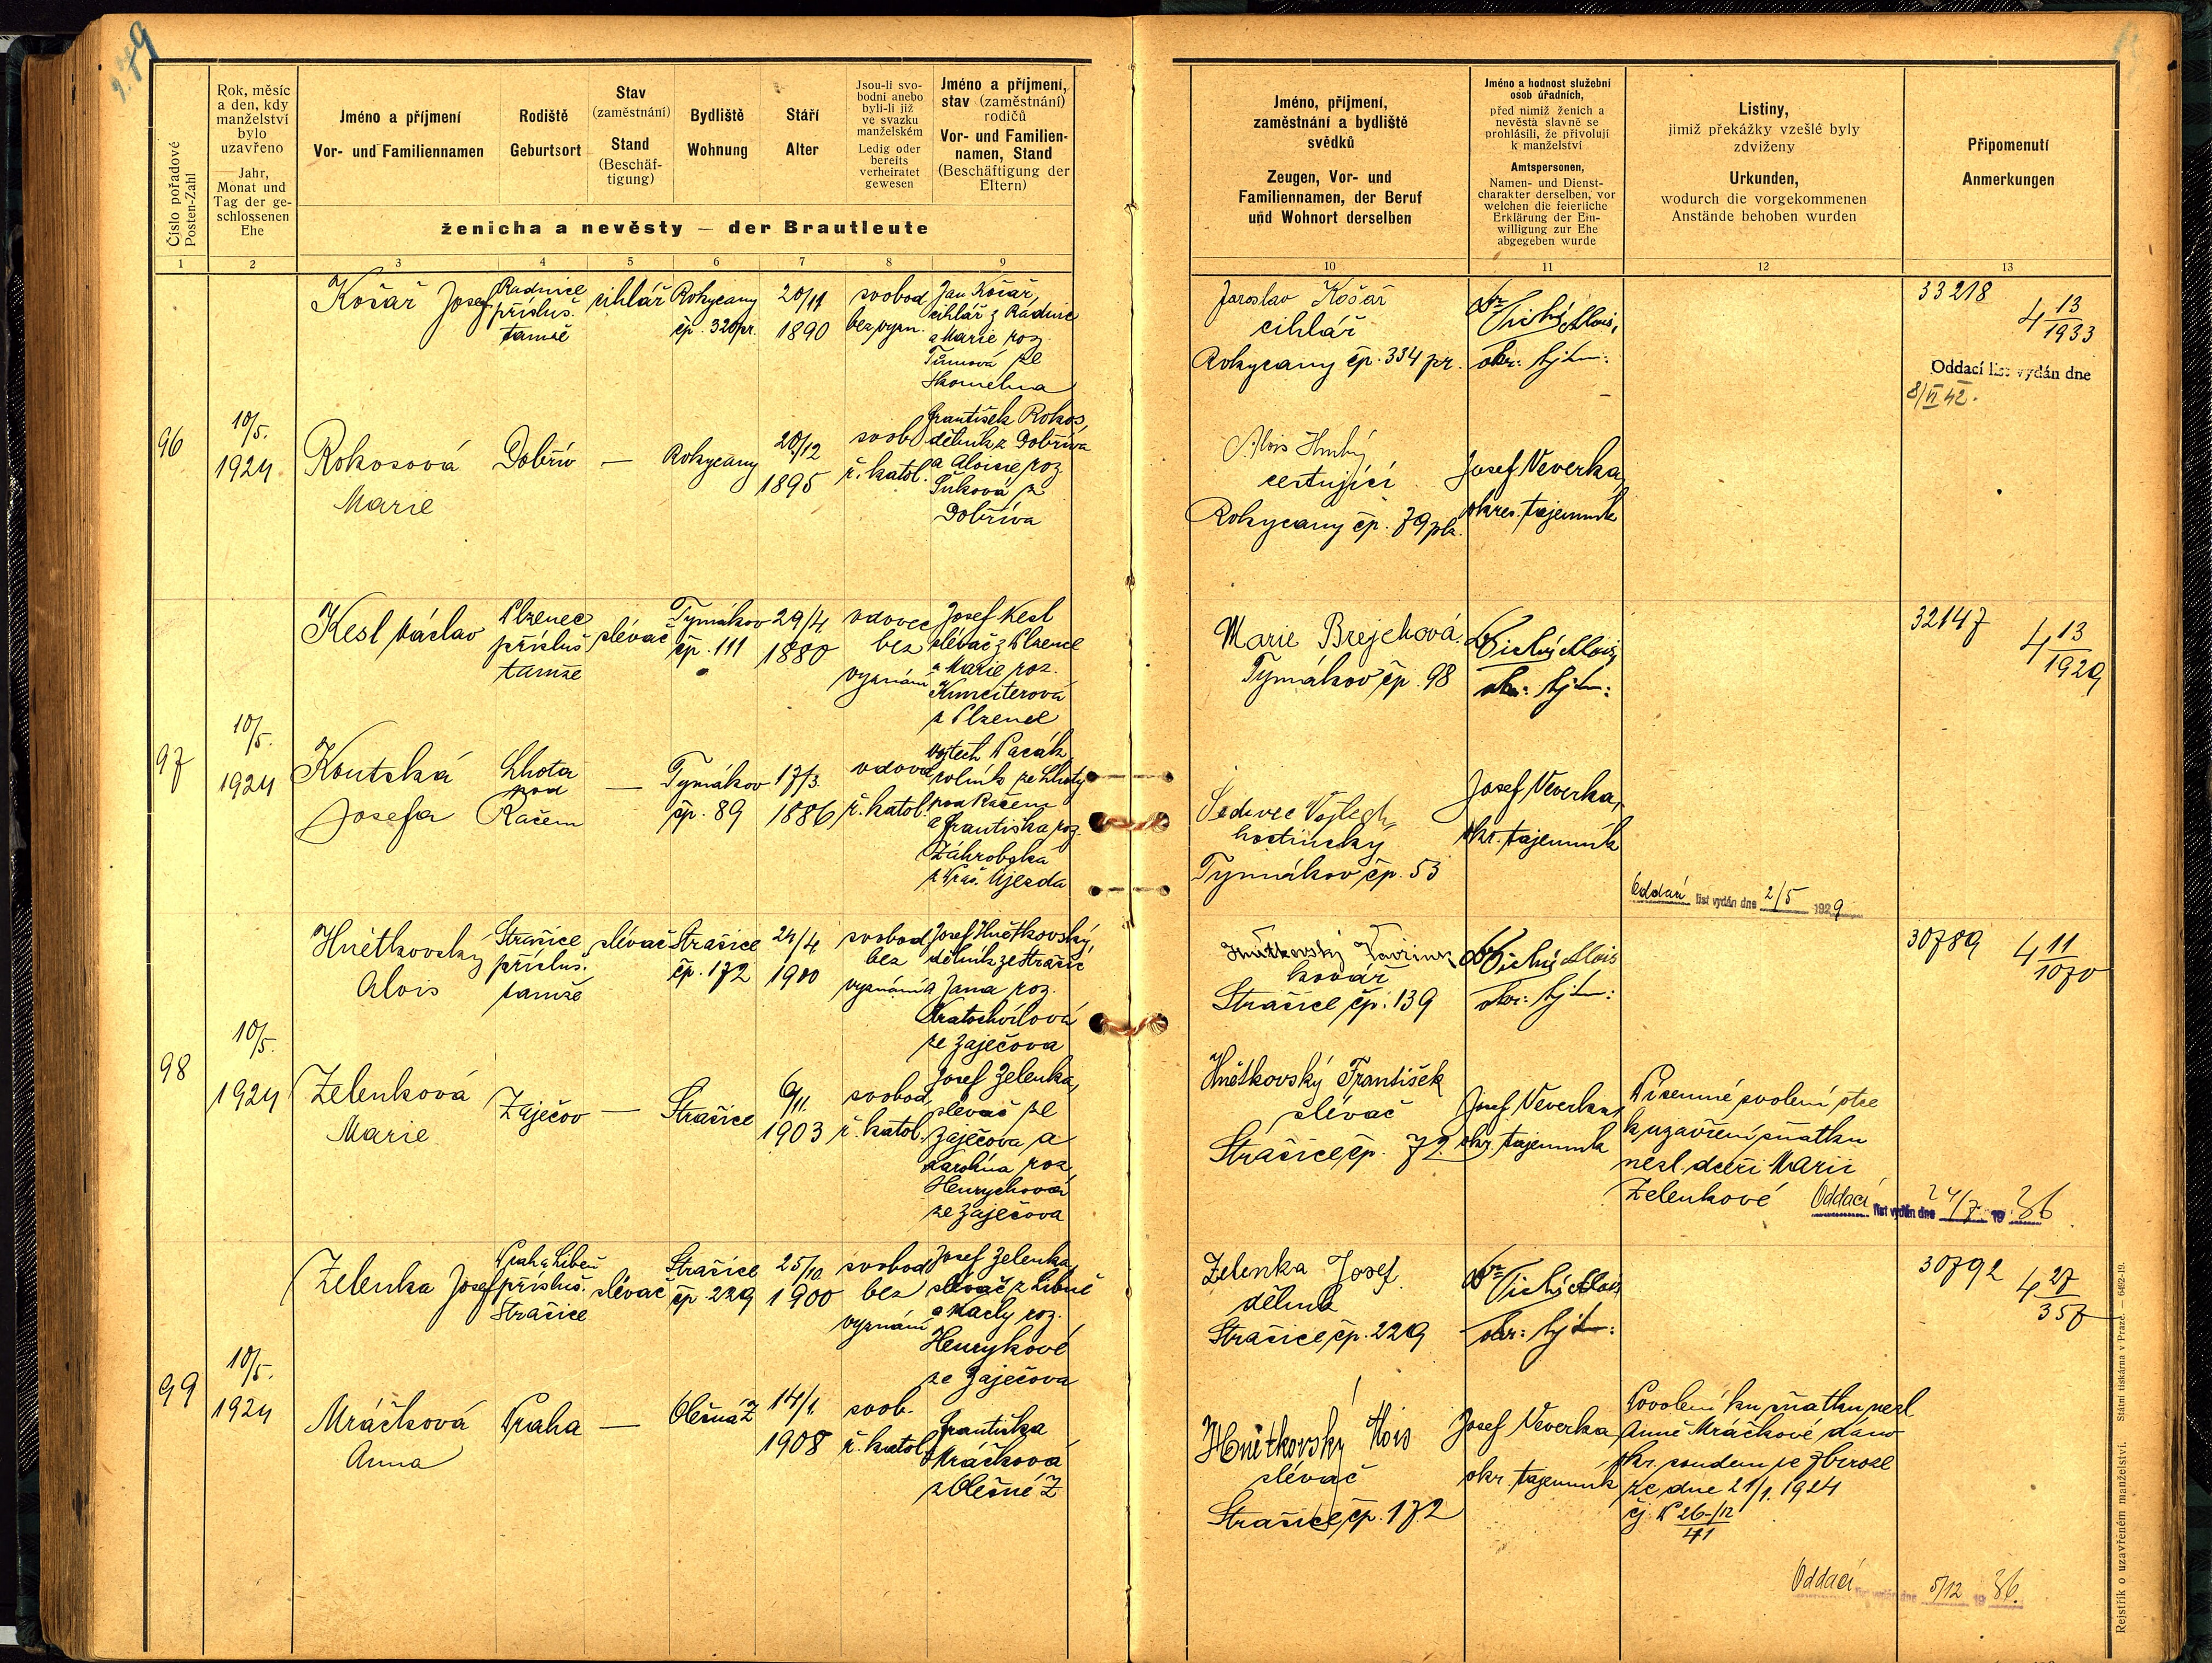 279
Číslo pořadové
Posten-Zahl
Rok, měsíc
a den, kdy
manželství
bylo
uzavřeno
Jahr,
Monat und
Tag der ge-
schlossenen
Ehe
Jméno a příjmení
Vor- und Familiennamen
Rodiště
Geburtsort
Stav
(zaměstnání)
Stand
(Beschäf-
tigung)
Bydliště
Wohnung
Stáří
Alter
Jsou-li svo-
bodni anebo
byli-li již
ve svazku
manželském
Ledig oder
bereits
verheiratet
gewesen
Jméno a příjmení,
stav (zaměstnání)
rodičů
Vor- und Familien-
namen, Stand
(Beschäftigung der
Eltern)
ženicha a nevěsty — der Brautleute
Jméno, příjmení,
zaměstnání a bydliště
svědků
Zeugen, Vor- und
Familiennamen, der Beruf
und Wohnort derselben
Jméno a hodnost služební
osob úřadních,
před nimiž ženich a
nevěsta slavně se
prohlásili, že přivolují
k manželství
Amtspersonen,
Namen- und Dienst-
charakter derselben, vor
welchen die feierliche
Erklärung der Ein-
willigung zur Ehe
abgegeben wurde
Listiny,
jimiž překážky vzešlé byly
zdviženy
Urkunden,
wodurch die vorgekommenen
Anstände behoben wurden
Připomenutí
Anmerkungen
1 2 3 4 5 6 7 8 9 10 11 12 13
96
10/5.
1924
Košař Josef
Radnice
přísluš.
tamže
cihlář
Rokycany
čp. 320 pr.
20/11
1890
svobod
bez vyzn.
Jan Košař,
cihlář z Radnic
a Marie roz.
Tůmová ze
Skomelna
Rokosová
Marie
Dobřív
—
Rokycany
20/12
1895
svob
ř. katol.
František Rokos,
dělník z Dobříva
a Aloisie roz.
Dobříva
Jaroslav Košař
cihlář
Rokycany čp. 334 pr.
Dr Tichý Alois,
okr. tajem:
Alois Hrubý
cestující
Rokycany čp. 79
Josef Veverka,
okres. tajemník
33218
4 13/1933
Oddací list vydán dne
8/VI 42.
97
10/5.
1924
Kesl Václav
Plzenec
přísluš
tamže
slévač
Tymákov
čp. 111
29/4
1880
vdovec
bez
vyznání
Josef Kesl
slévač z Plzence
a Marie roz.
z Plzence
Koutská
Josefa
Lhota
pod
Račem
—
Tymákov
čp. 89
17/3.
1886
vdova
ř. katol.
Vojtěch Pacák
rolník ze Lhoty
pod Račem
a Františka roz.
Záhrobská
Újezda
Marie Brejchová
Tymákov čp. 98
Dr Tichý Alois,
okr. tajem:
Sedivec Vojtěch
hostinský
Tymákov čp. 53
Josef Veverka,
okr. tajemník
Oddací list vydán dne 2/5 1929
32147
4 13/1929
98
10/5.
1924
Hnětkovský
Alois
Strašice
přísluš.
tamže
slévač
Strašice
čp. 172
24/4
1900
svobod
bez
vyznání
Josef Hnětkovský,
dělník ze Strašic
a Jana roz.
Kratochvilová
ze Zaječova
Zelenková
Marie
Zaječov
—
Strašice
6/11.
1903
svobod,
ř. katol.
Josef Zelenka,
slévač ze
Zaječova a
Karolina roz.
Henrychová
ze Zaječova
Hnětkovský Vavřinec
kovář
Strašice čp. 139
Dr Tichý Alois
okr. tajem:
Hnětkovský František
slévač
Strašice čp. 72.
Josef Veverka,
okr. tajemník
Písemné svolení otce
k uzavření sňatku
nezl. dceři Marii
Zelenkové
Oddací list vydán dne 24/7 1936
30789
4 11/1070
99
10/5.
1924
Zelenka Josef
Praha Libeň
přísluš.
Strašice
slévač
Strašice
čp 229
25/10
1900
svobod
bez
vyznání
Josef Zelenka,
slévač z Libně
a roz.
Henrykové
ze Zaječova
Mráčková
Anna
Praha
—
Olešná Z
14/1.
1908
svob.
ř. katol.
Františka
Mráčková
z Olešné Z
Zelenka Josef
dělník
Strašice čp. 229
Dr Tichý Alois
okr: tajem:
Hnětkovský Alois
slévač
Strašice čp. 172
Josef Veverka
okr. tajemník
Povolení ku sňatku nezl
Anně Mráčkové dáno
okr. soudem ve Zbiroze
ze dne 21/1. 1924
čj. P 26/12
41
Oddací list vydán dne 5/12 1936.
30792
4 27/357
Rejstřík o uzavřeném manželství. Státní tiskárna v Praze. — 6462-19.